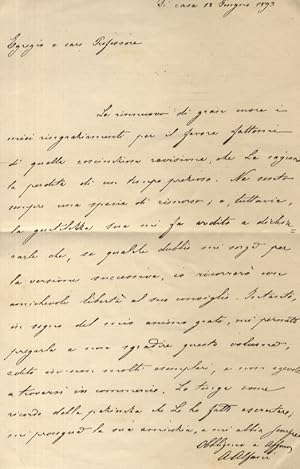 Di casa 18 Giugno 1893
Egregio e caro Professore
Le rinnuovo di gran cuore i
miei ringraziamenti per il favore fattomi
di quella coscienziosa revisione, che Le cagionò
la perdita di un tempo prezioso. Ne sento
sempre una specie di rimorso, e, tuttavia,
la gentilezza sua mi fa ardito a dichia-
rarle che, se qualche dubbio mi sorga per
la versione successiva, io ricorrerò con
amichevole libertà al suo consiglio. Intanto,
in segno del mio animo grato, mi permetta
pregarla a non sgradire questo volume,
edito in non molti esemplari, e non agevole
a trovarsi in commercio. Lo tenga come
ricordo della pazienza che Le ho fatto esercitare,
mi prosegua la sua amicizia, e mi abbia sempre
Obbligmo e Affmo
A. Alfani